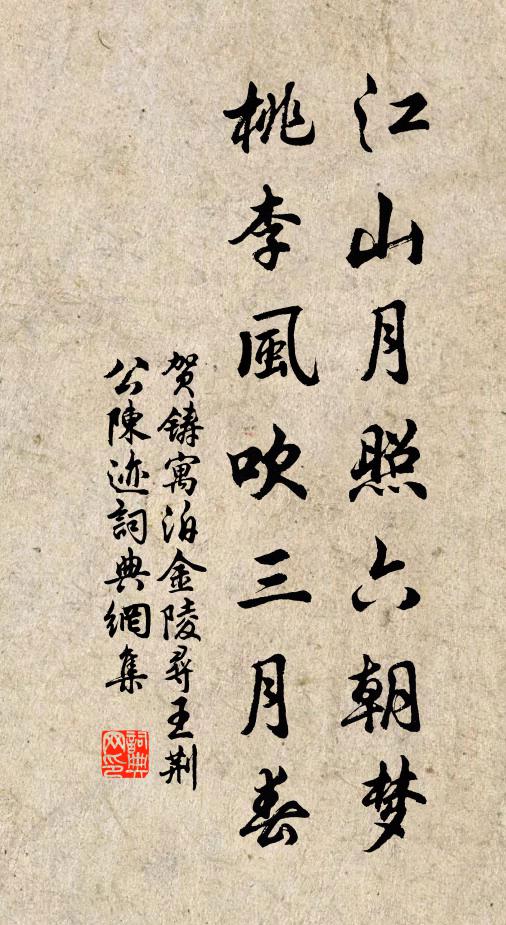 江山月照六朝梦
桃李風吹三月春
贺鋳寓泊金陵尋王荆
公陳迹詞典網集
詞典
网印